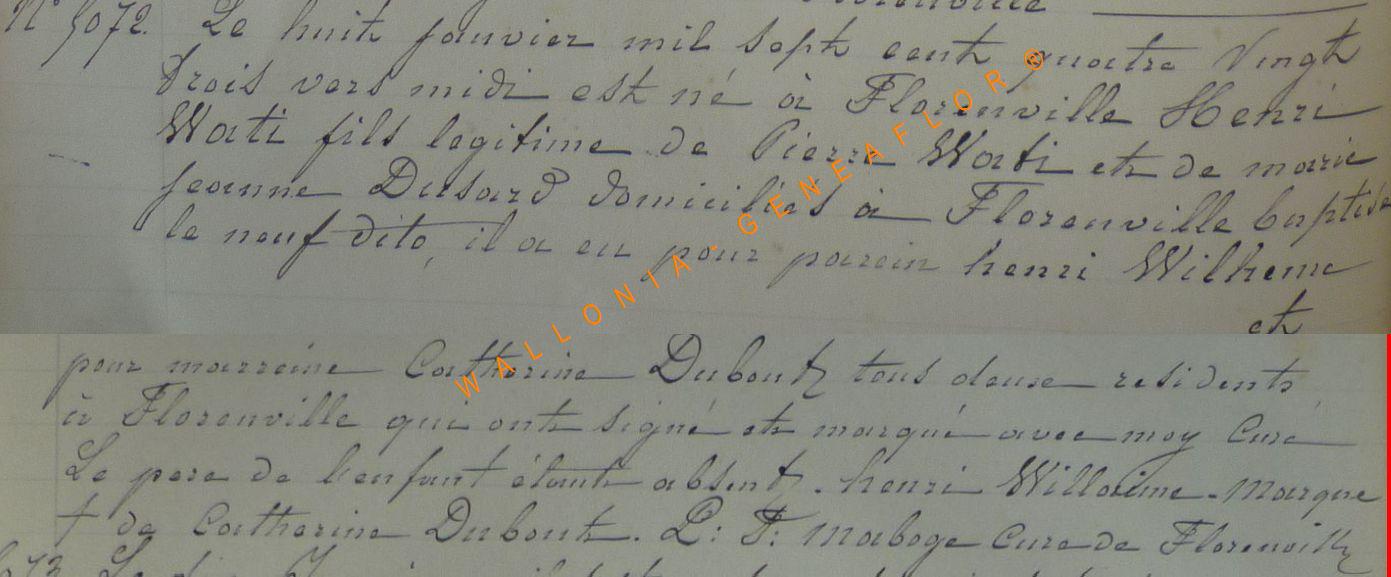 Florenville
N° 5072. Le huit janvier mil sept cent quatre Vingt
trois vers midi est né à Florenville Henri
Wati fils legitime de Pierre Wati et de marie
jeanne Dusard domiciliés à Florenville baptisé
le neuf dito, il a eu pour parein henri Wilheme
et
pour marreine Catherine Dubout tous deux residents
à Florenville qui ont signé et marqué avec moy Curé
Le pere de l'enfant étant absent. henri Willaime. Marque
† de Catherine Dubout. L: F: Maboge Curé de Florenville
WALLONIA - GENEAFLOR ©